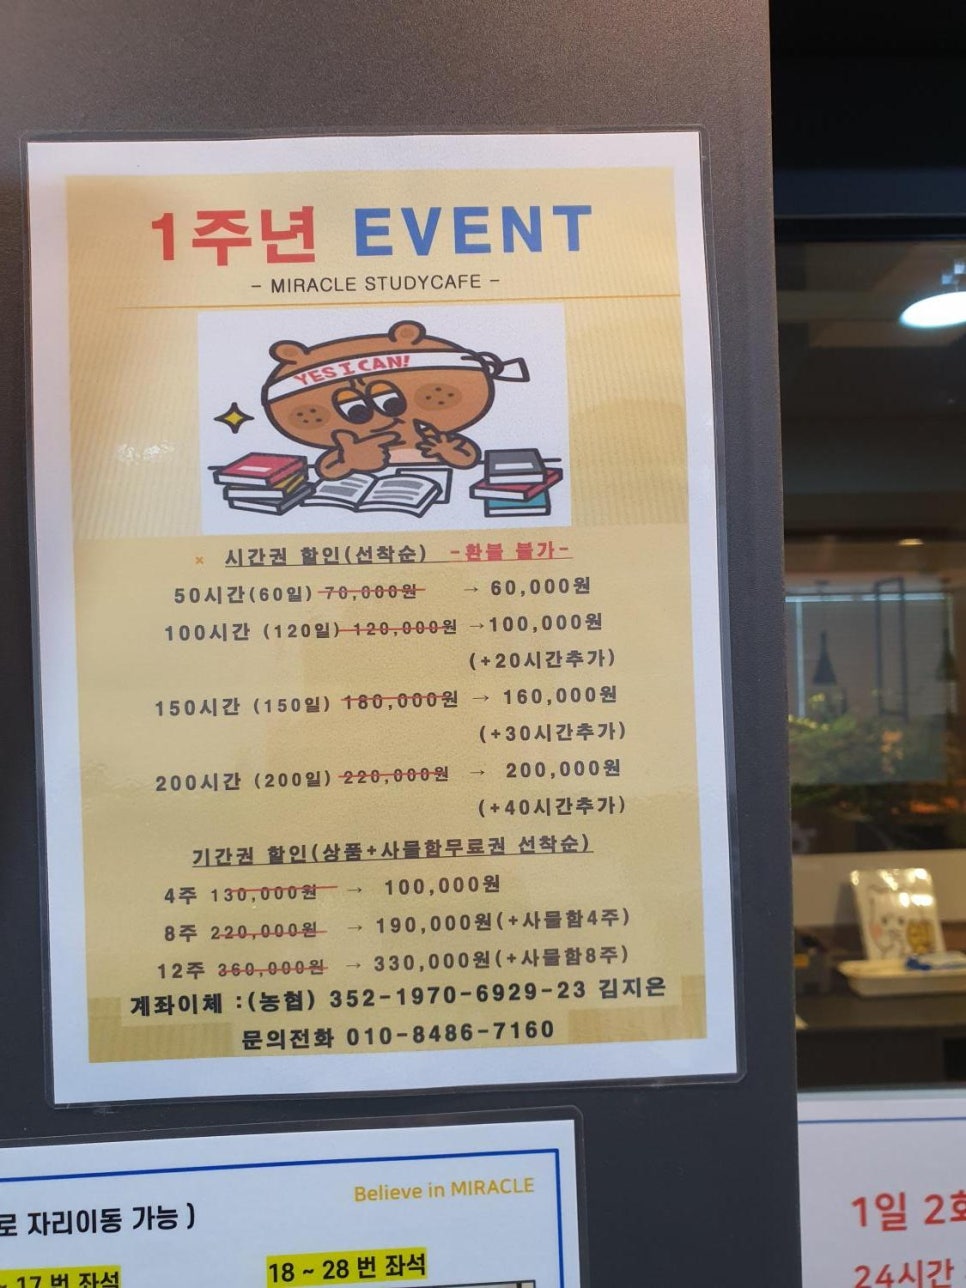 1주년 EVENT
- MIRACLE STUDYCAFE -
YES I CAN!
× 시간권 할인(선착순) -환불 불가-
50시간(60일) 70,000원 → 60,000원
100시간 (120일) 120,000원 →100,000원
(+20시간추가)
150시간 (150일) 180,000원 → 160,000원
(+30시간추가)
200시간 (200일) 220,000원 → 200,000원
(+40시간추가)
기간권 할인(상품+사물함무료권 선착순)
4주 130,000원 → 100,000원
8주 220,000원 → 190,000원(+사물함4주)
12주 360,000원 → 330,000원(+사물함8주)
계좌이체 :(농협) 352-1970-6929-23 김지은
문의전화 010-8486-7160
Believe in MIRACLE
로 자리이동 가능 )
~ 17 번 좌석
18 ~ 28 번 좌석
1일 2회
24시간